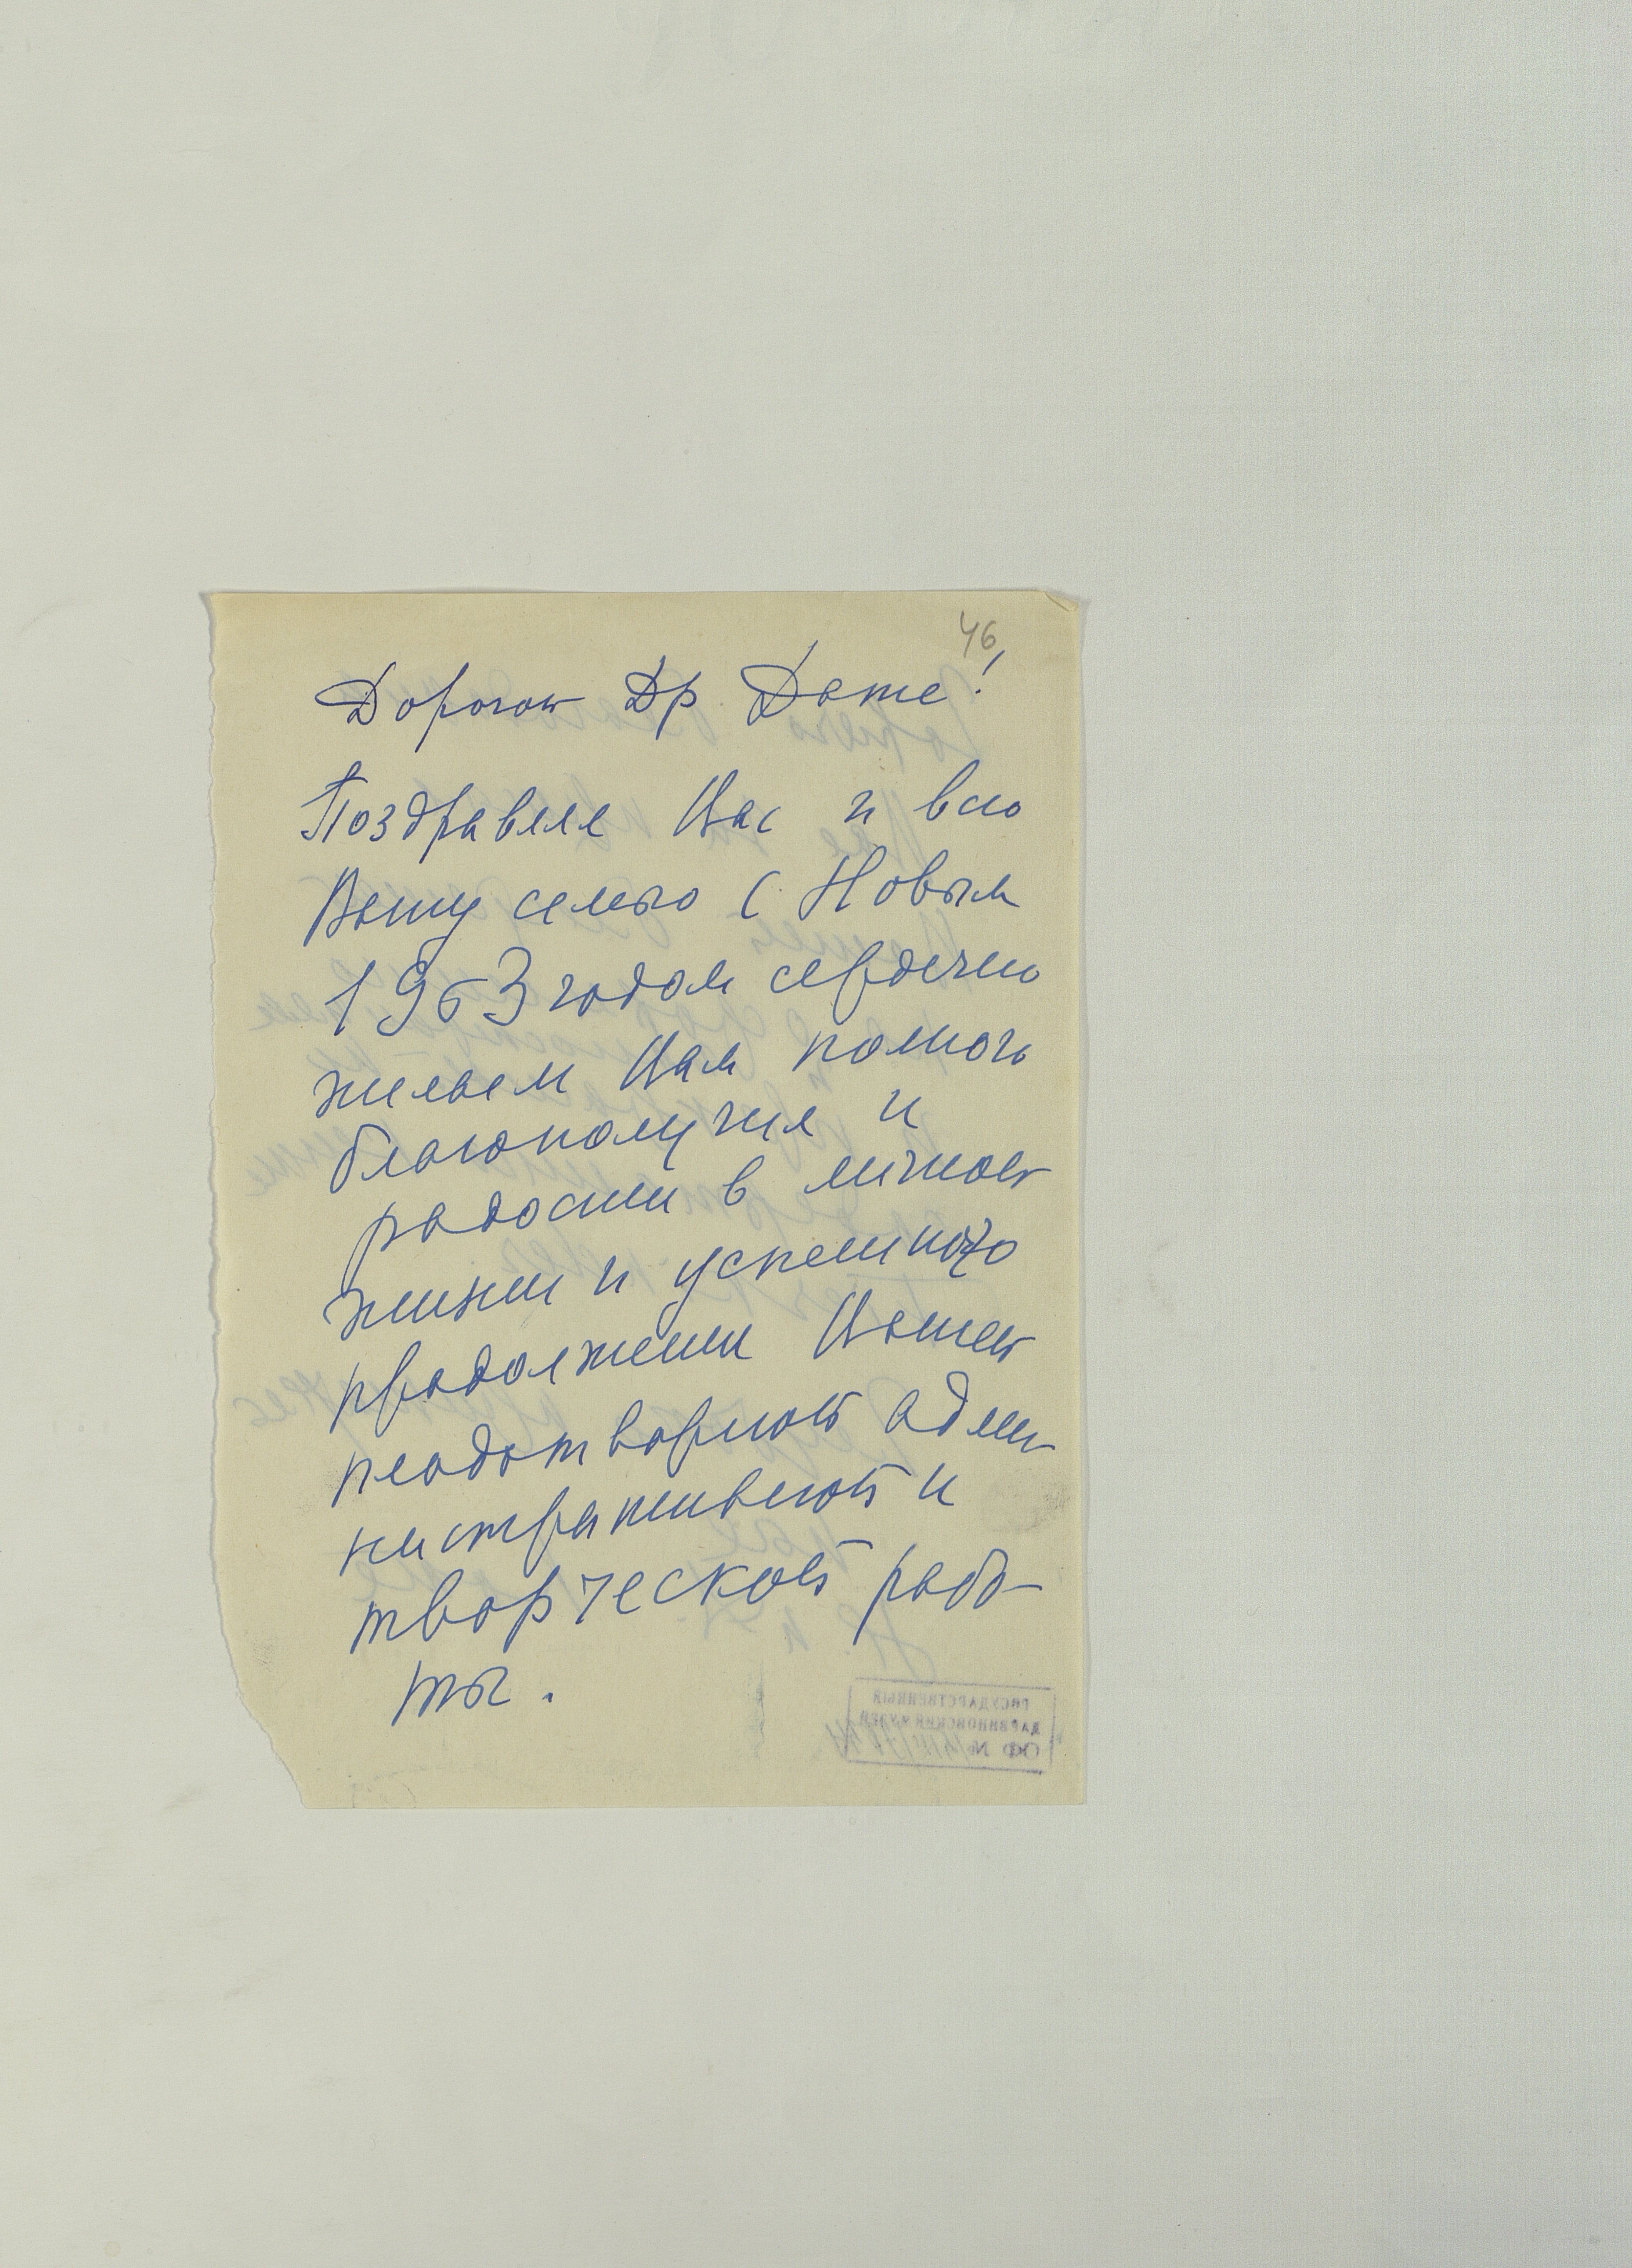 46
Дорогой Др Дате!
Поздравляя Вас и всю
Вашу семью с Новым
1963 годом сердечно
желаем Вам полного
благополучия и
радости в личной
жизни и успешного
продолжения Вашей
плодотворной адми-
нистративной и
творческой рабо-
ты.
ГОСУДАРСТВЕННЫЙ
ДАРВИНОВСКИЙ МУЗЕЙ
ОФ №